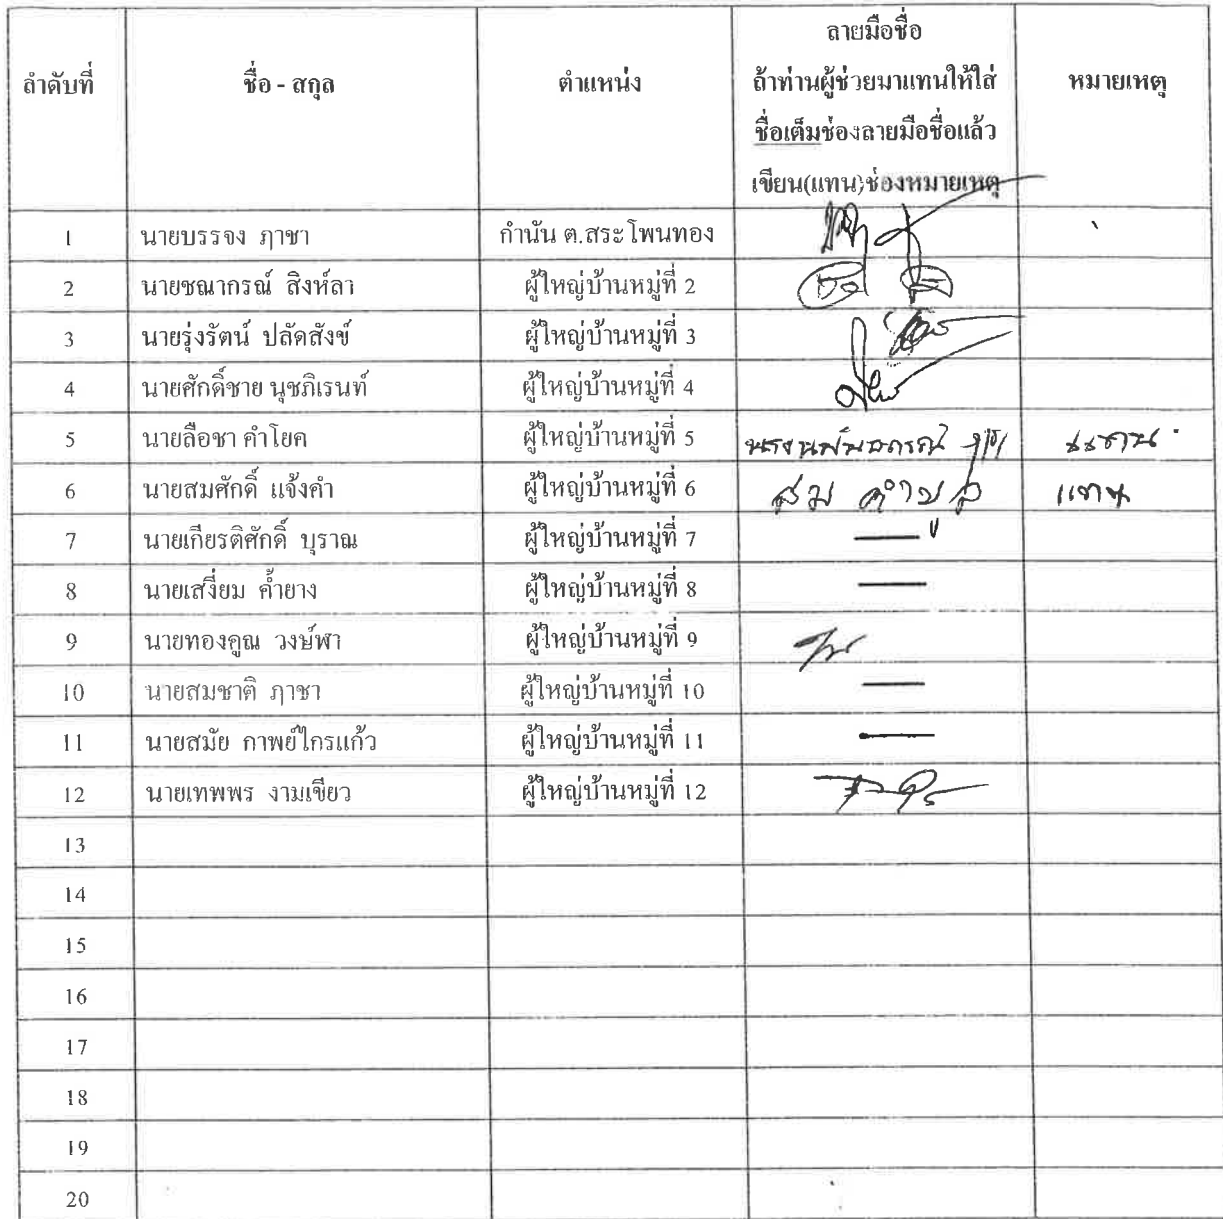 ลำดับที่ ชื่อ - สกุล ตำแหน่ง ลายมือชื่อ
ถ้าท่านผู้ช่วยมาแทนให้ใส่
ชื่อเต็มช่องลายมือชื่อแล้ว
เขียน(แทน)ช่องหมายเหตุ หมายเหตุ
1 นายบรรจง ภาชา กำนัน ต.สระโพนทอง
2 นายชณากรณ์ สิงห์ลา ผู้ใหญ่บ้านหมู่ที่ 2
3 นายรุ่งรัตน์ ปลัดสังข์ ผู้ใหญ่บ้านหมู่ที่ 3
4 นายศักดิ์ชาย นุชภิเรนท์ ผู้ใหญ่บ้านหมู่ที่ 4
5 นายลือชา คำโยค ผู้ใหญ่บ้านหมู่ที่ 5
6 นายสมศักดิ์ แจ้งคำ ผู้ใหญ่บ้านหมู่ที่ 6 แทน
7 นายเกียรติศักดิ์ บุราณ ผู้ใหญ่บ้านหมู่ที่ 7 —
8 นายเสงี่ยม ค้ำยาง ผู้ใหญ่บ้านหมู่ที่ 8 —
9 นายทองคูณ วงษ์ฬา ผู้ใหญ่บ้านหมู่ที่ 9
10 นายสมชาติ ภาชา ผู้ใหญ่บ้านหมู่ที่ 10 —
11 นายสมัย กาพย์ไกรแก้ว ผู้ใหญ่บ้านหมู่ที่ 11 —
12 นายเทพพร งามเขียว ผู้ใหญ่บ้านหมู่ที่ 12
13
14
15
16
17
18
19
20